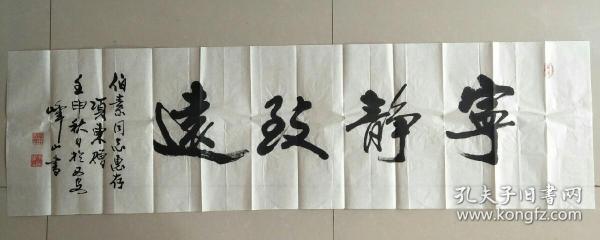 寧静致遠
伯素同志惠存
項東贈
壬申秋日於西安
峰山書
孔夫子旧書网
www.kongfz.com